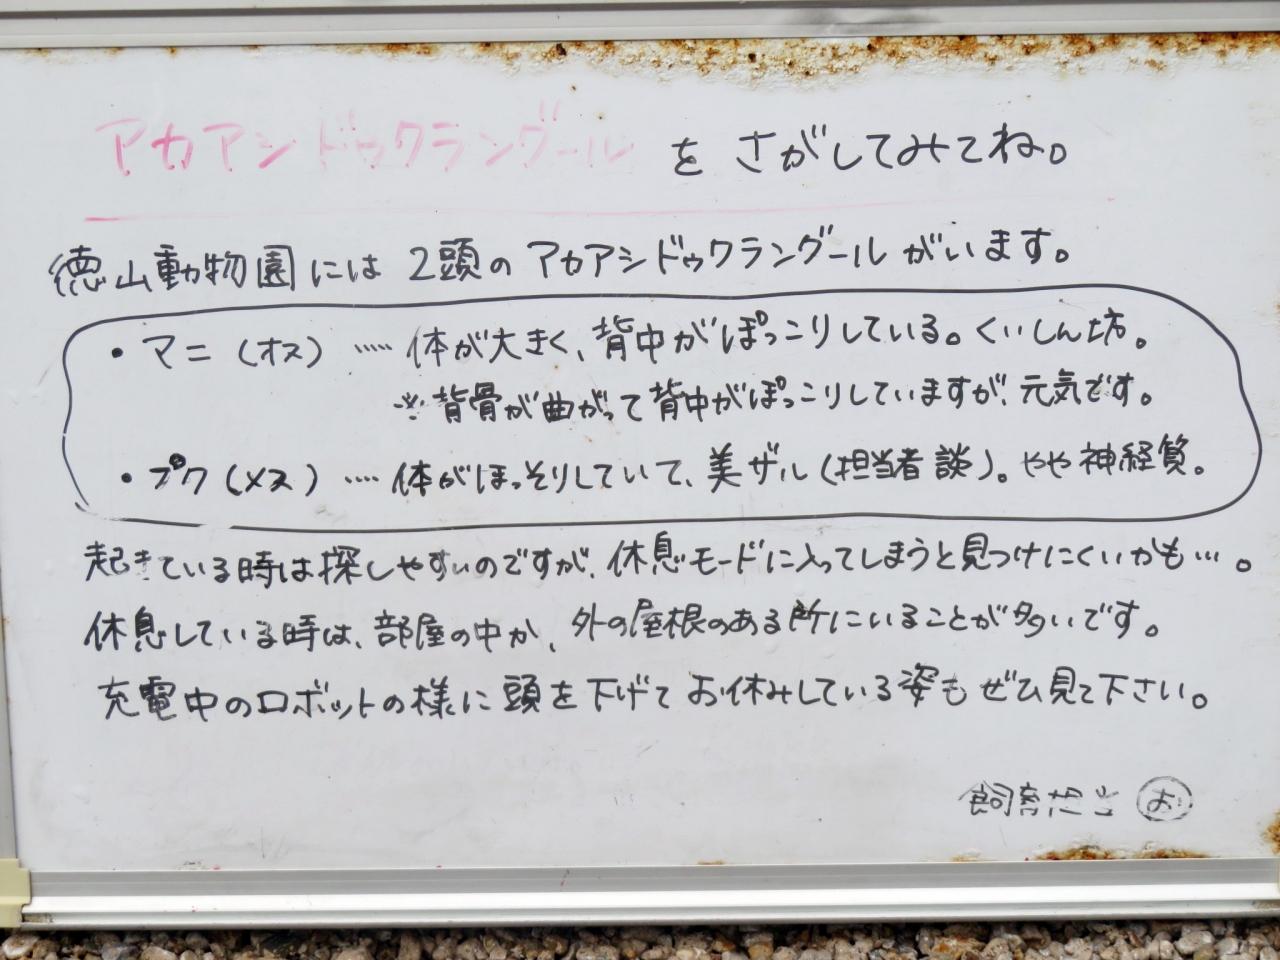 アカアシドゥクラングールをさがしてみてね。
徳山動物園には2頭のアカアシドゥクラングールがいます。
・マニ(オス)……体が大きく、背中がぽっこりしている。くいしん坊。
※背骨が曲がって背中がぽっこりしていますが、元気です。
・プク(メス)……体がほっそりしていて、美ザル(担当者談)。やや神経質。
起きている時は探しやすいのですが、休息モードに入ってしまうと見つけにくいかも…。
休息している時は、部屋の中か、外の屋根のある所にいることが多いです。
充電中のロボットの様に頭を下げてお休みしている姿もぜひ見て下さい。
飼育担当 お